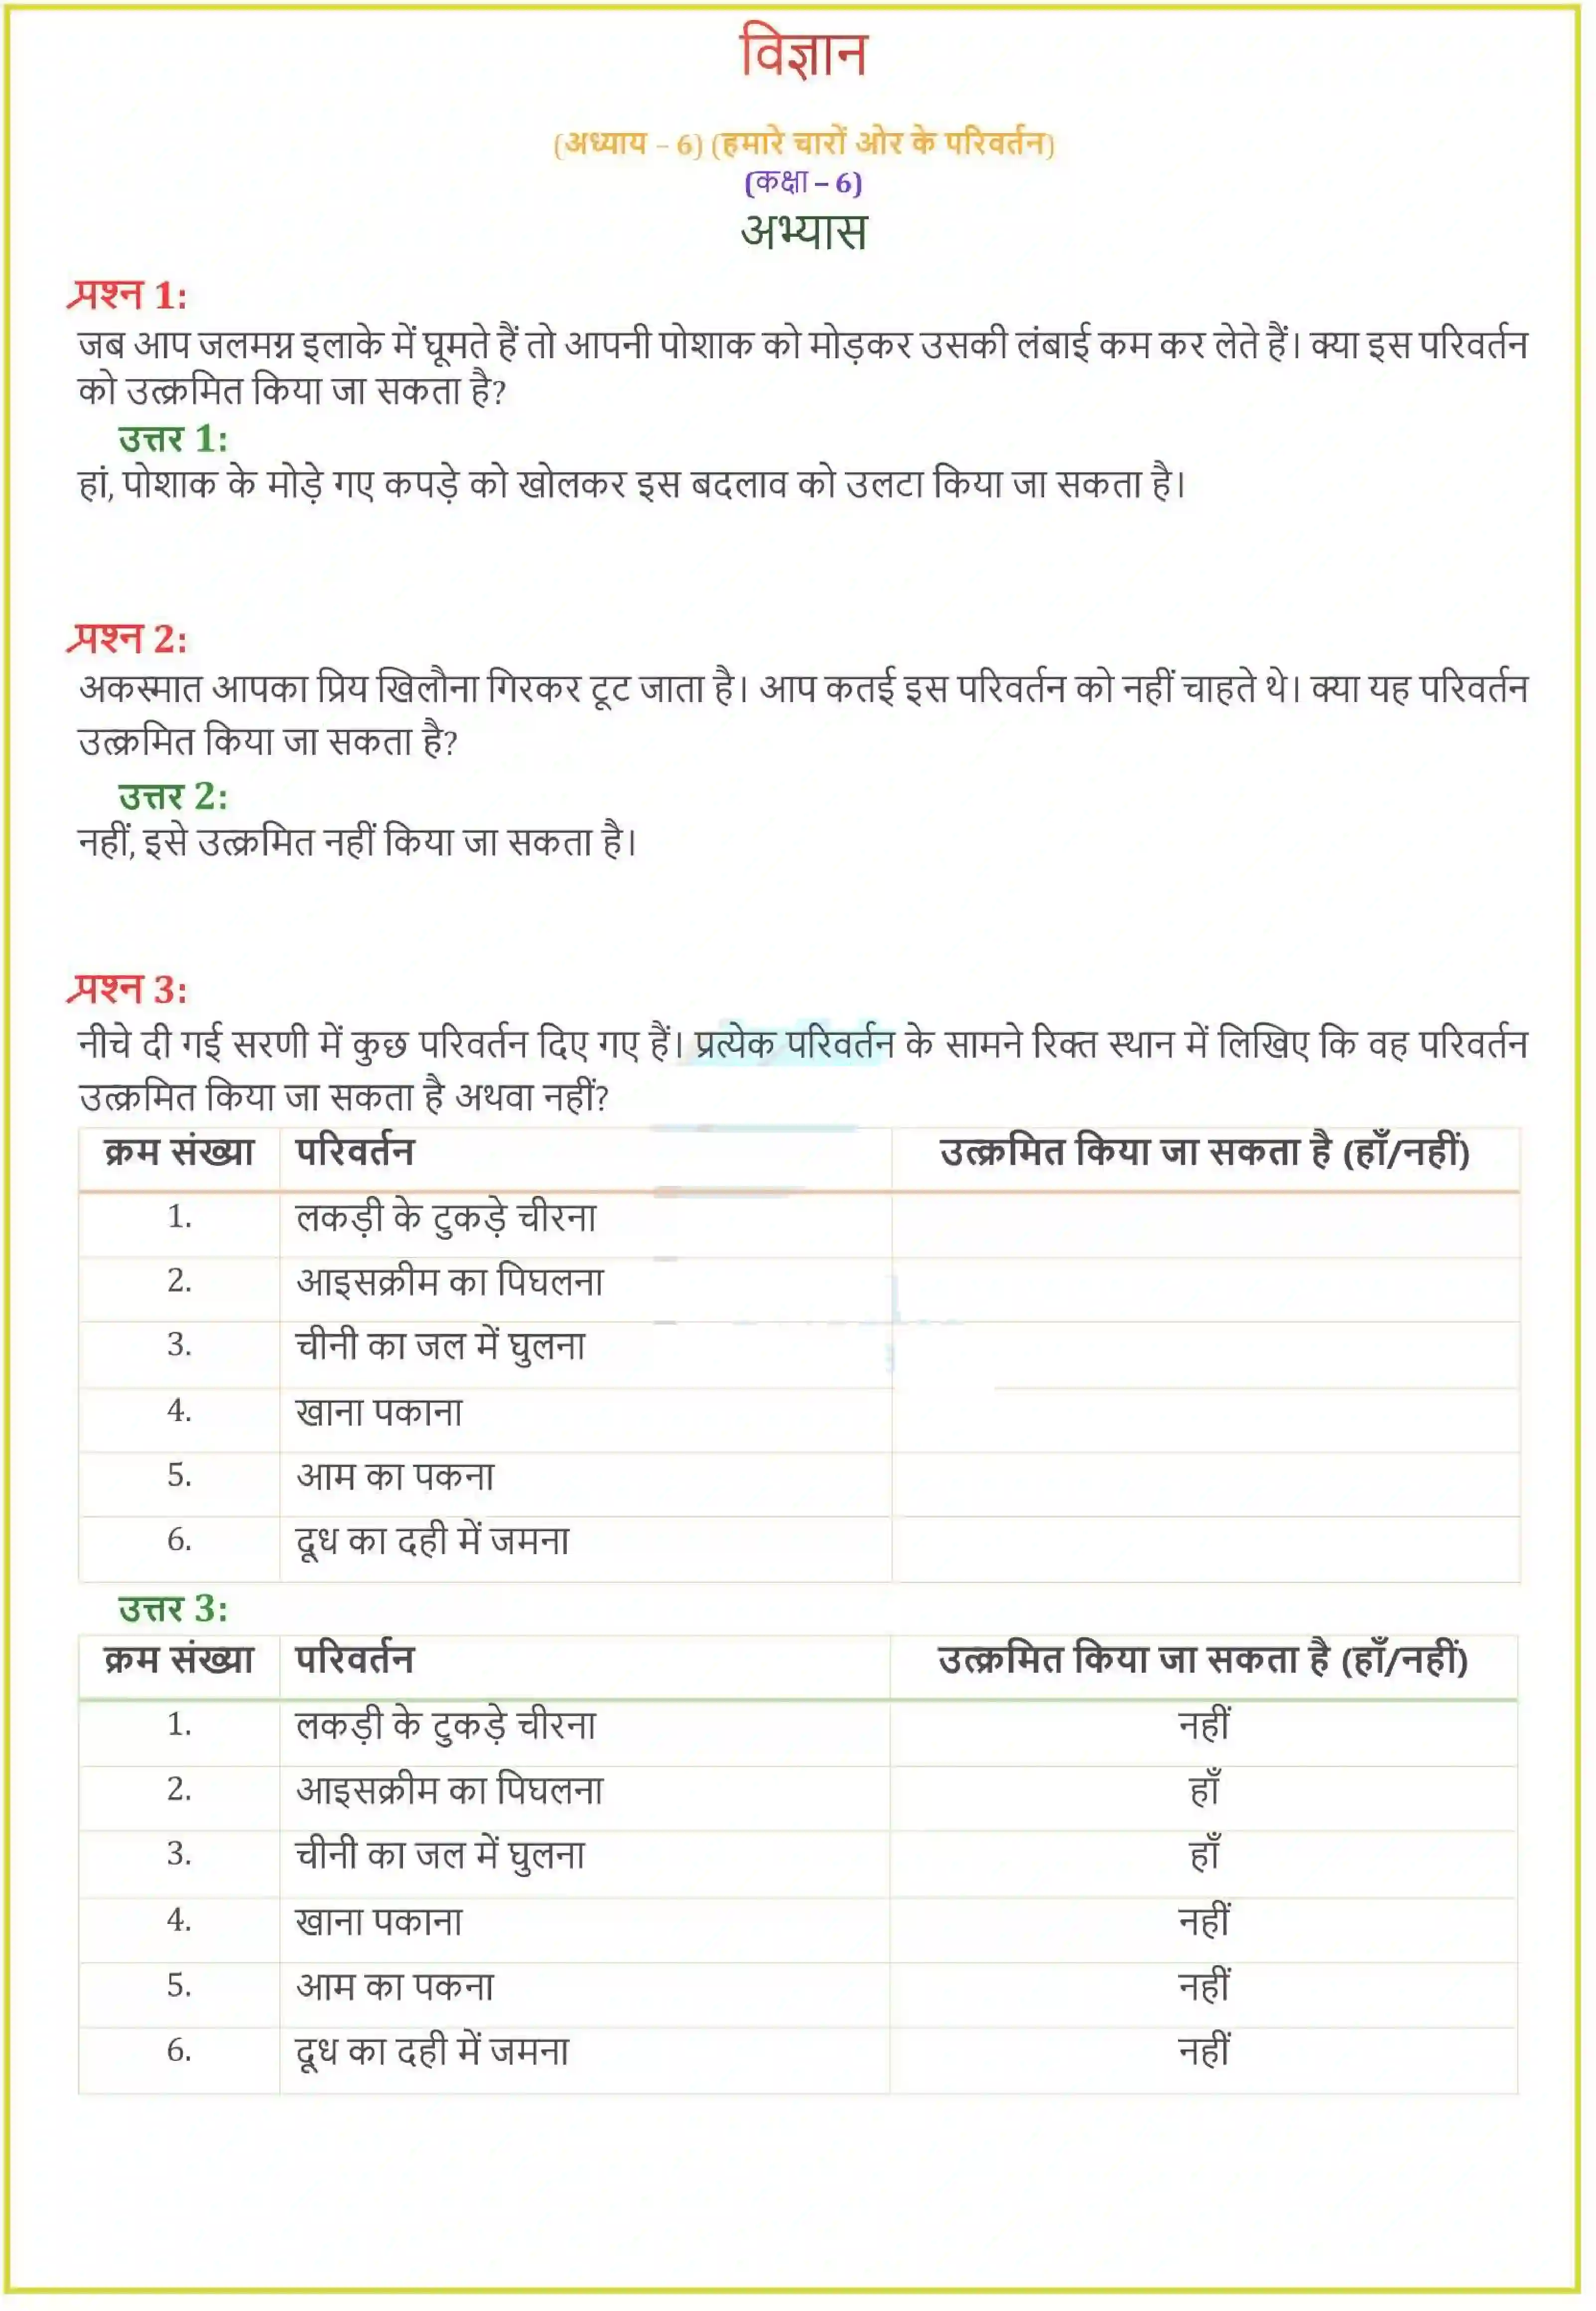 विज्ञान
(अध्याय – 6) (हमारे चारों ओर के परिवर्तन)
(कक्षा – 6)
अभ्यास
प्रश्न 1:
जब आप जलमग्न इलाके में घूमते हैं तो आपनी पोशाक को मोड़कर उसकी लंबाई कम कर लेते हैं। क्या इस परिवर्तन
को उत्क्रमित किया जा सकता है?
उत्तर 1:
हां, पोशाक के मोड़े गए कपड़े को खोलकर इस बदलाव को उलटा किया जा सकता है।
प्रश्न 2:
अकस्मात आपका प्रिय खिलौना गिरकर टूट जाता है। आप कतई इस परिवर्तन को नहीं चाहते थे। क्या यह परिवर्तन
उत्क्रमित किया जा सकता है?
उत्तर 2:
नहीं, इसे उत्क्रमित नहीं किया जा सकता है।
प्रश्न 3:
नीचे दी गई सरणी में कुछ परिवर्तन दिए गए हैं। प्रत्येक परिवर्तन के सामने रिक्त स्थान में लिखिए कि वह परिवर्तन
उत्क्रमित किया जा सकता है अथवा नहीं?
क्रम संख्या परिवर्तन उत्क्रमित किया जा सकता है (हाँ/नहीं)
1. लकड़ी के टुकड़े चीरना
2. आइसक्रीम का पिघलना
3. चीनी का जल में घुलना
4. खाना पकाना
5. आम का पकना
6. दूध का दही में जमना
उत्तर 3:
क्रम संख्या परिवर्तन उत्क्रमित किया जा सकता है (हाँ/नहीं)
1. लकड़ी के टुकड़े चीरना नहीं
2. आइसक्रीम का पिघलना हाँ
3. चीनी का जल में घुलना हाँ
4. खाना पकाना नहीं
5. आम का पकना नहीं
6. दूध का दही में जमना नहीं